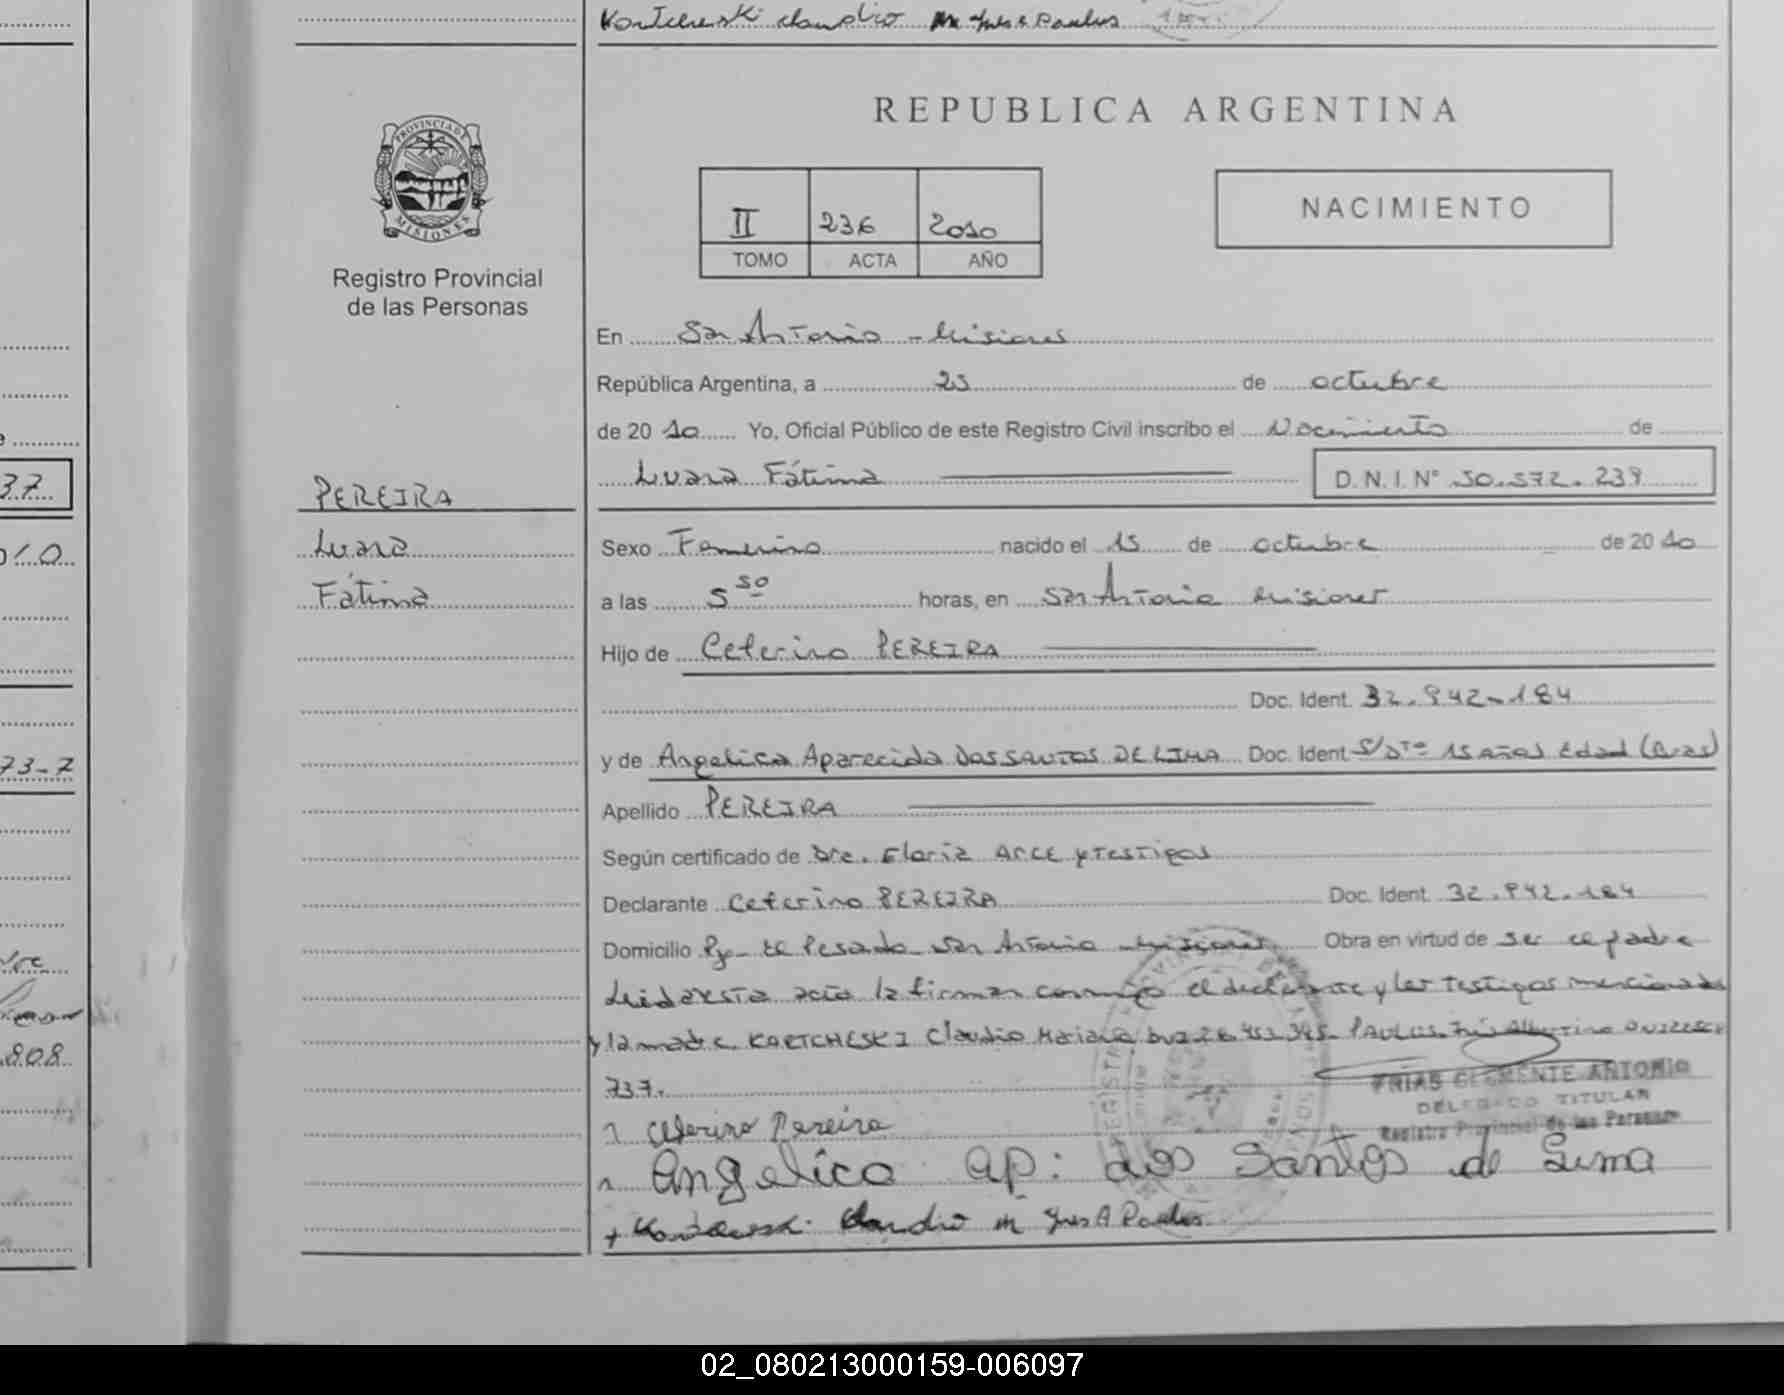 Kortcheski Claudio M Ines A Paulus
PROVINCIA DE
MISIONES
Registro Provincial
de las Personas
REPUBLICA ARGENTINA
II 236 2010
TOMO ACTA AÑO
NACIMIENTO
En San Antonio - Misiones
República Argentina, a 25 de octubre
de 20 10 Yo, Oficial Público de este Registro Civil inscribo el Nacimiento de
Luara Fátima D.N.I. Nº 50.572.239
37
PEREIRA
Luara
Fátima
Sexo Femenino nacido el 15 de octubre de 20 10
a las 5 50 horas, en San Antonio Misiones
Hijo de Ceferino PEREIRA
Doc. Ident. 32.942.184
73-7
y de Angelica Aparecida DOS SANTOS DE LIMA Doc. Ident S/Dto 15 años Edad (Bras)
Apellido PEREIRA
Según certificado de Dra. Gloria Arce y Testigos
Declarante Ceferino PEREIRA Doc. Ident. 32.942.184
Domicilio Pje El Pesado San Antonio Misiones Obra en virtud de ser el padre
Leida esta acta la firman conmigo el declarante y los testigos mencionados
y la madre KORTCHESKI Claudio Mariano DNI 26.453.345- PAULUS Inés Albertina DNI
737.
808
FRIAS CLEMENTE ANTONIO
DELEGADO TITULAR
Registro Provincial de las Personas
Ceferino Pereira
Angelica ap: dos Santos de Lima
+ Kortcheski Claudio M Ines A Paulus
02_080213000159-006097